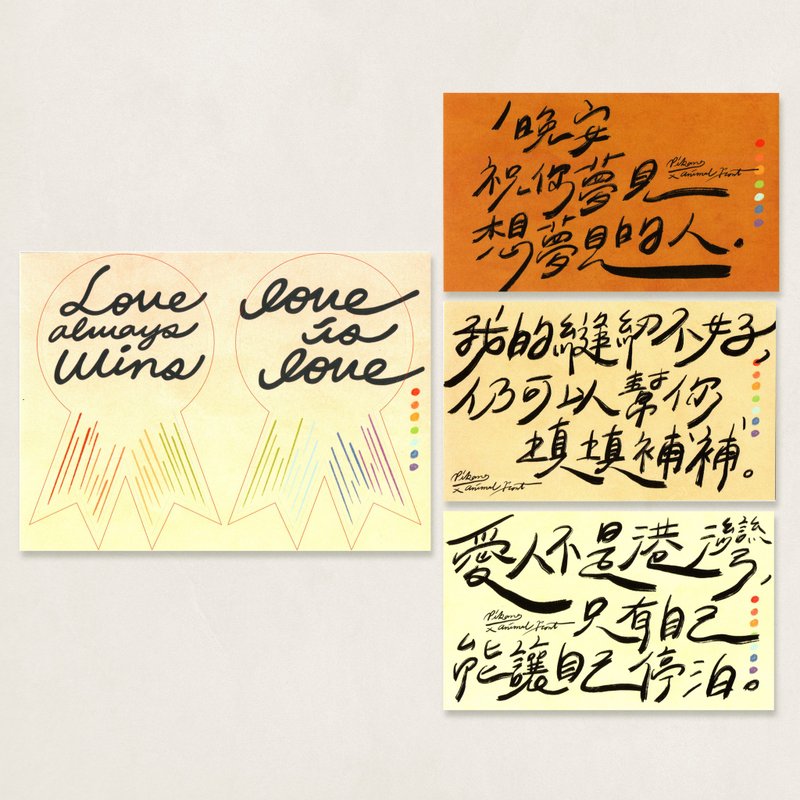 Love
always
Wins
love
is
love
晚安
祝你夢見
想夢見的人。
Pikomo
x Animal Front
我的縫紉不好,
仍可以幫你
填填補補。
Pikomo
x Animal Front
愛人不是港灣,
只有自己
能讓自己停泊。
Pikomo
x Animal Front